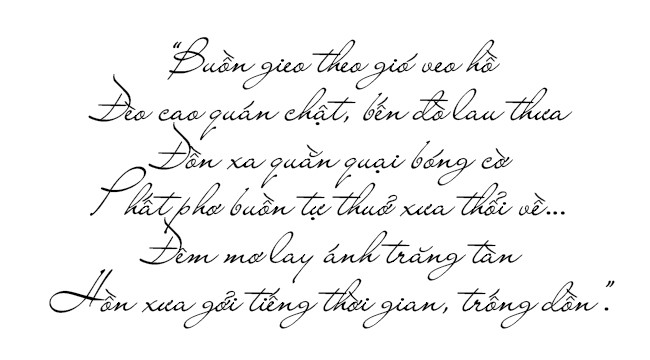 "Buồn gieo theo gió veo hồ
Đèo cao quán chật, bến đò lau thưa
Đồn xa quằn quại bóng cờ
Phất phơ buồn tự thuở xưa thổi về...
Đêm mơ lay ánh trăng tàn
Hồn xưa gởi tiếng thời gian, trống dồn".